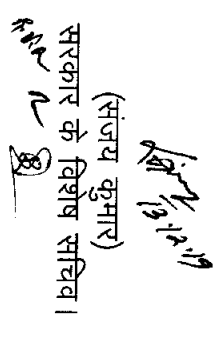 13.12.19
(संजय कुमार)
सरकार के विशेष सचिव।